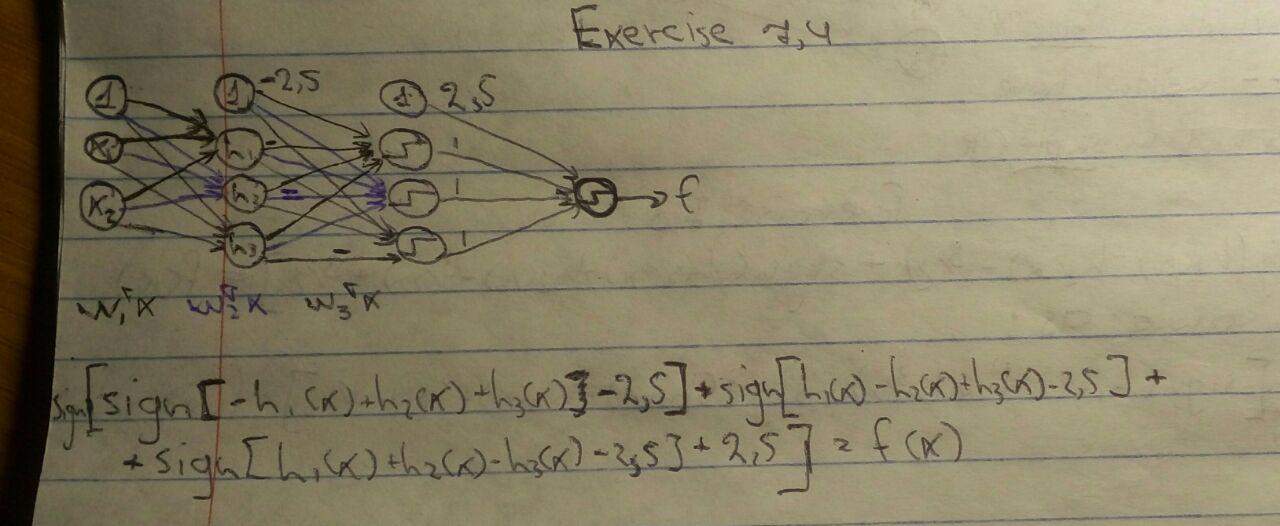 Exercise 7,4
1 1 -2,5 1 2,5
x₁ h₁ - 1
x₂ h₂ = 1 f
h₃ - 1
w₁ᵀx w₂ᵀx w₃ᵀx
sign[sign[-h₁(x)+h₂(x)+h₃(x)]-2,5]+sign[h₁(x)-h₂(x)+h₃(x)-2,5]+
+sign[h₁(x)+h₂(x)-h₃(x)-2,5]+2,5]=f(x)